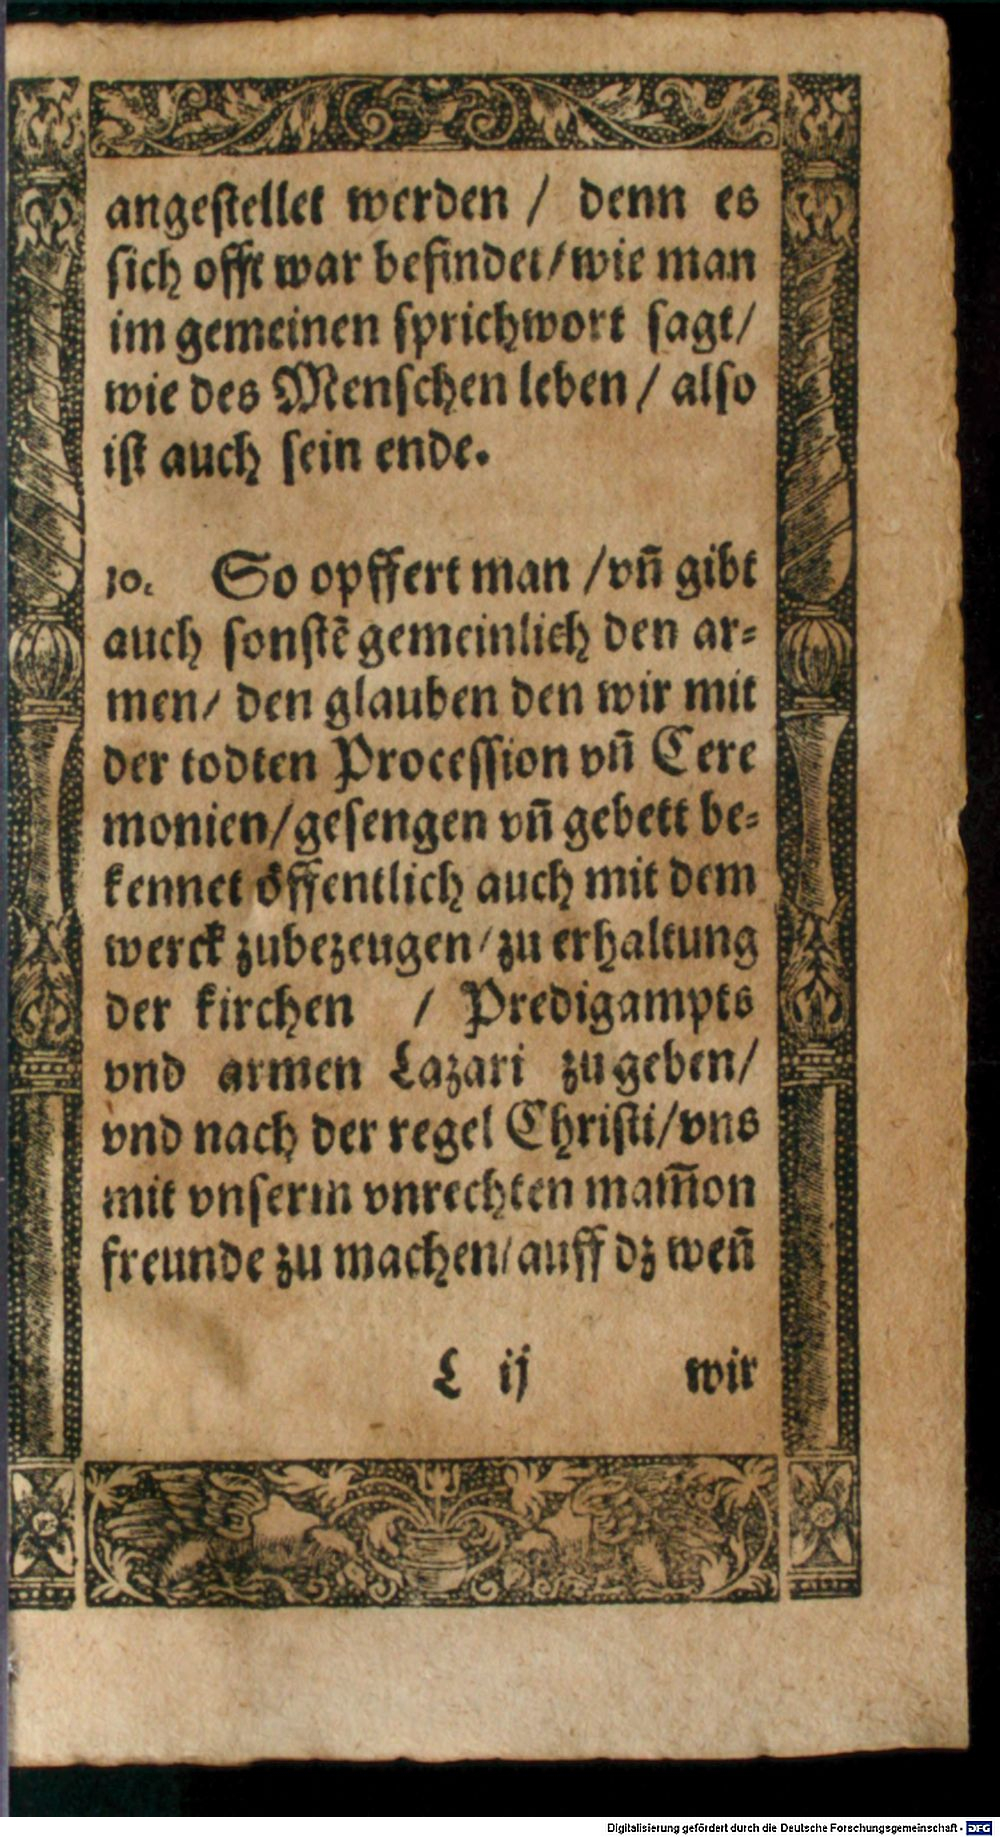 angestellet werden / denn es
sich offt war befindet / wie man
im gemeinen sprichwort sagt /
wie des Menschen leben / also
ist auch sein ende.
10. So opffert man / vñ gibt
auch sonstẽ gemeinlich den ar=
men / den glauben den wir mit
der todten Procession vñ Cere
monien / gesengen vñ gebett be=
kennet öffentlich auch mit dem
werck zubezeugen / zu erhaltung
der kirchen / Predigampts
vnd armen Lazari zu geben /
vnd nach der regel Christi / vns
mit vnserm vnrechten mam̃on
freunde zu machen / auff dz weñ
L ij wir
Digitalisierung gefördert durch die Deutsche Forschungsgemeinschaft - DFG